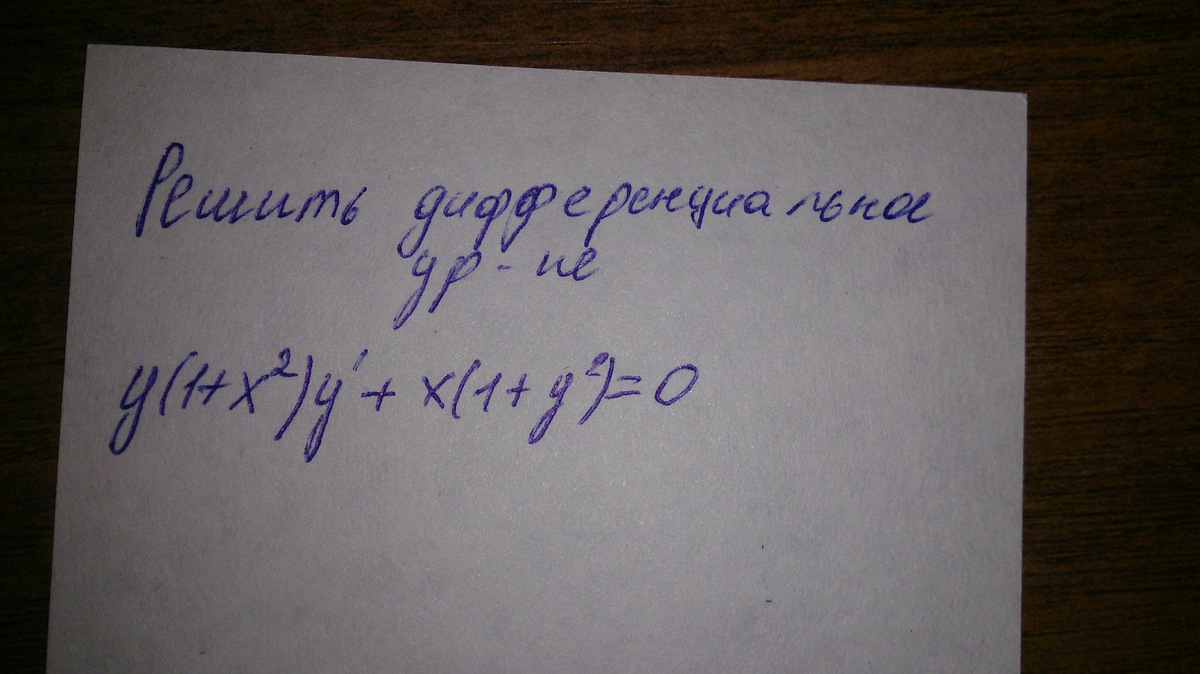 Решить дифференциальное
ур-ие
y(1+x²)y'+ x(1+y²)=0